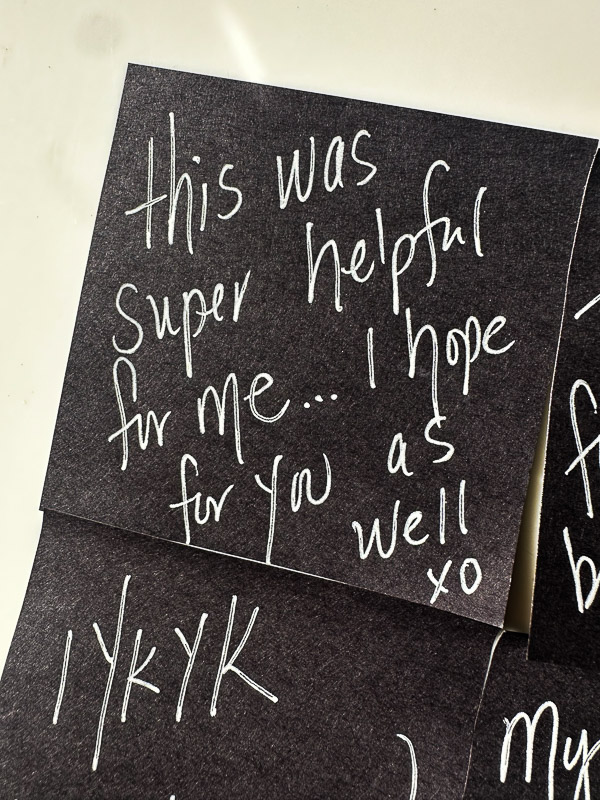 this was
super helpful
for me... I hope
for you as
well
xo
IYKYK
my